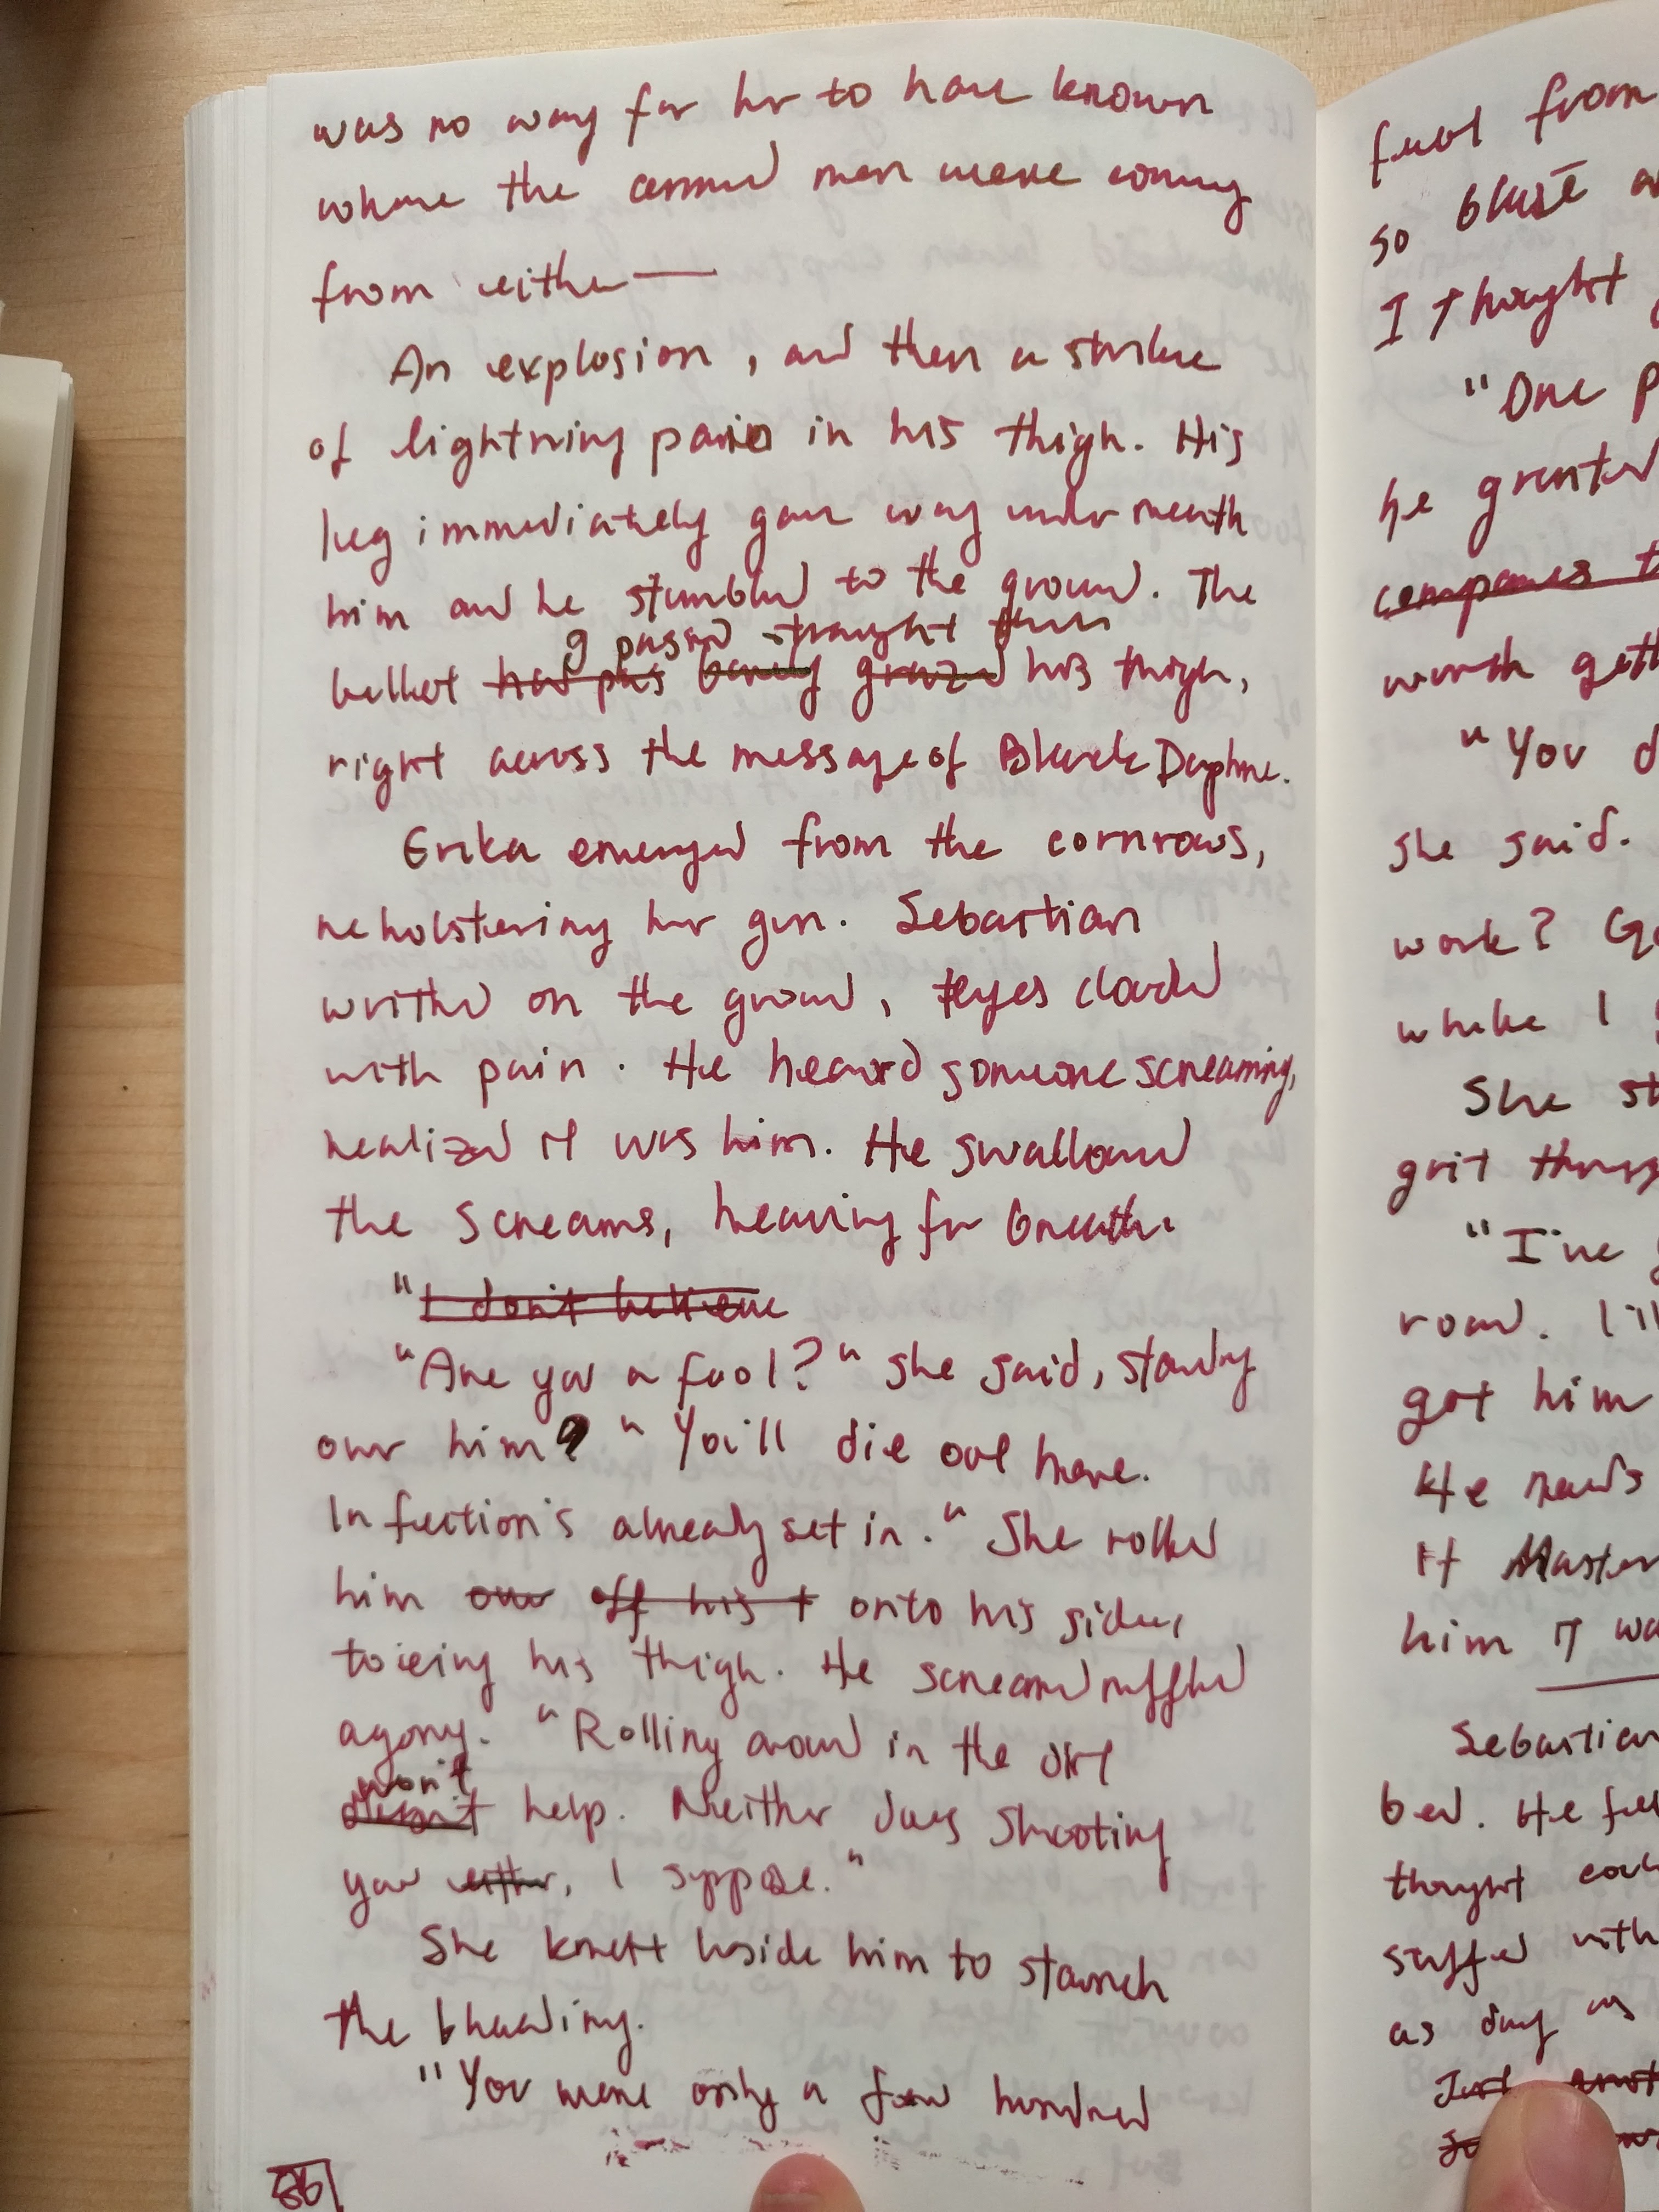 was no way for her to have known
where the armed men were coming
from either—
An explosion, and then a strike
of lightning pain in his thigh. His
leg immediately gave way underneath
him and he stumbled to the ground. The
passed straight thru
bullet had pas barely grazed his thigh,
right across the message of Black Daphne.
Erika emerged from the cornrows,
reholstering her gun. Sebastian
writhed on the ground, eyes clouded
with pain. He heard someone screaming,
realized it was him. He swallowed
the screams, heaving for breath.
"I don't believe
"Are you a fool?" she said, standing
over him. "You'll die out here.
Infection's already set in." She rolled
him over off his t onto his side,
toeing his thigh. He screamed muffled
agony. "Rolling around in the dirt
won't
doesn't help. Neither does shooting
you either, I suppose."
She knelt beside him to staunch
the bleeding.
"You were only a few hundred
86
feet from
so blasé
I thought
"One
he grunted
companies
worth
"You
she said.
work?
while I
She
grit
"I've
road.
got him
He needs
it Master
him it
Sebastian
bed. He
thought
stuffed with
as day as
Just